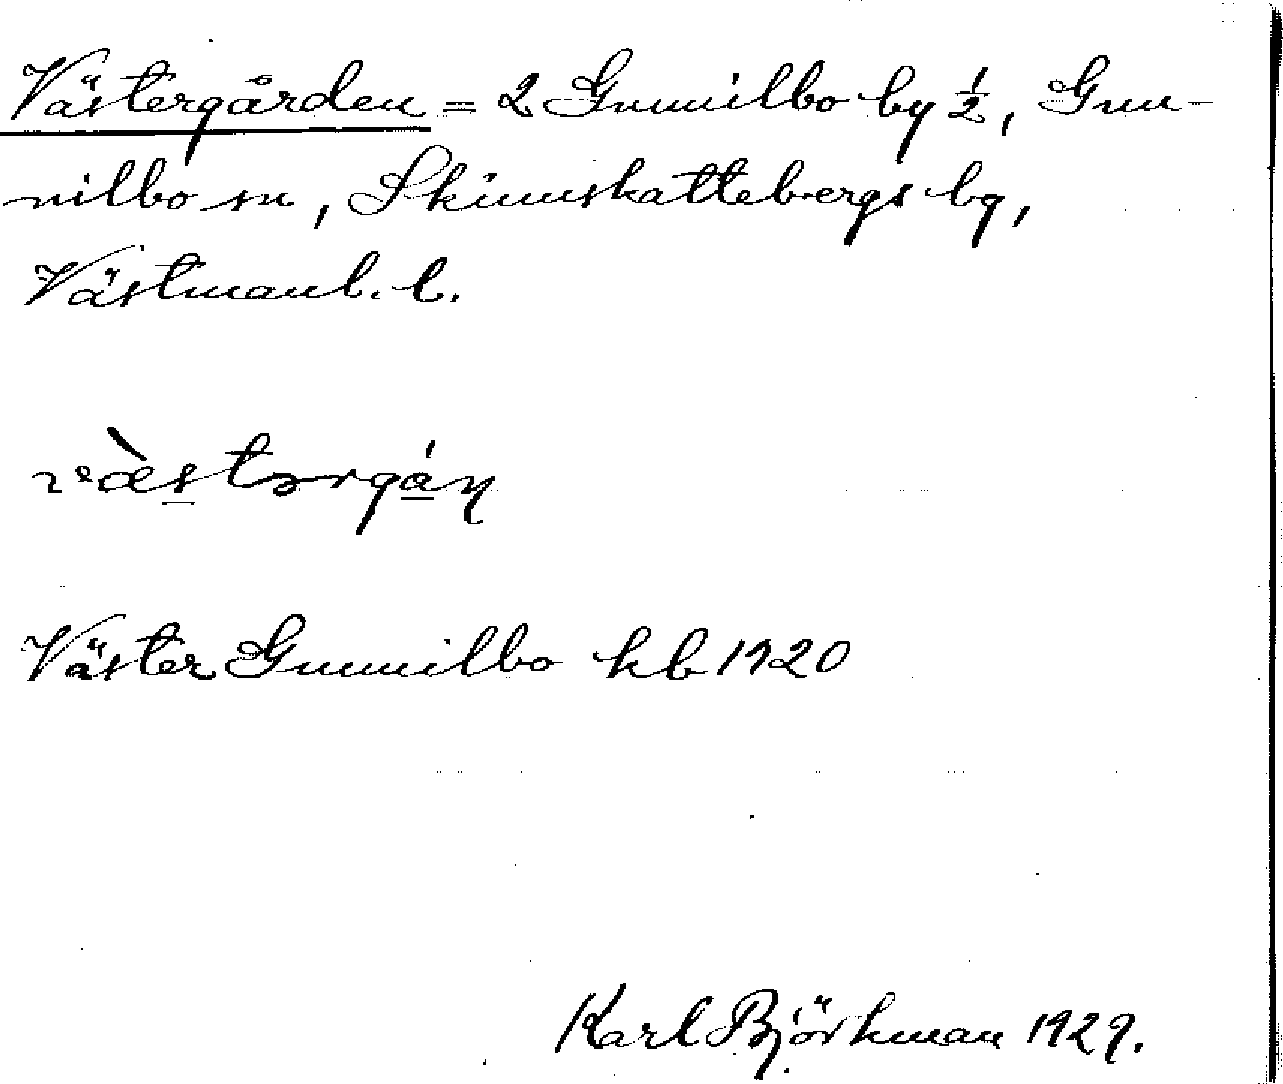 Västergården = 2 Gunnilbo by ½, Gun-
nilbo sn, Skinnskattebergs bg,
Västmanl. l.
væ̀stərgán
Väster Gunnilbo kb 1920
Karl Björkman 1929.